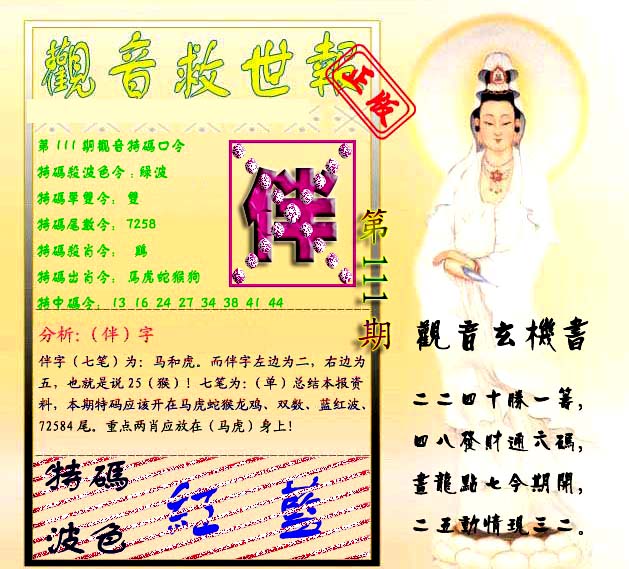 觀音救世報
正版
第111期觀音特碼口令
特碼殺波色令:綠波
特碼單雙令: 雙
特碼尾數令: 7258
特碼殺肖令: 鷄
特碼出肖令: 馬虎蛇猴狗
特中碼令: 13 16 24 27 34 38 41 44
伴
第111期
分析:(伴)字
伴字(七笔)为:马和虎。而伴字左边为二,右边为
五,也就是说25(猴)!七笔为:(单)总结本报资
料,本期特码应该开在马虎蛇猴龙鸡、双数、蓝红波、
72584尾。重点两肖应放在(马虎)身上!
特碼
波色
紅 藍
觀音玄機書
二二四十勝一籌,
四八發財通六碼,
畫龍點七今期開,
二五動情現三二。